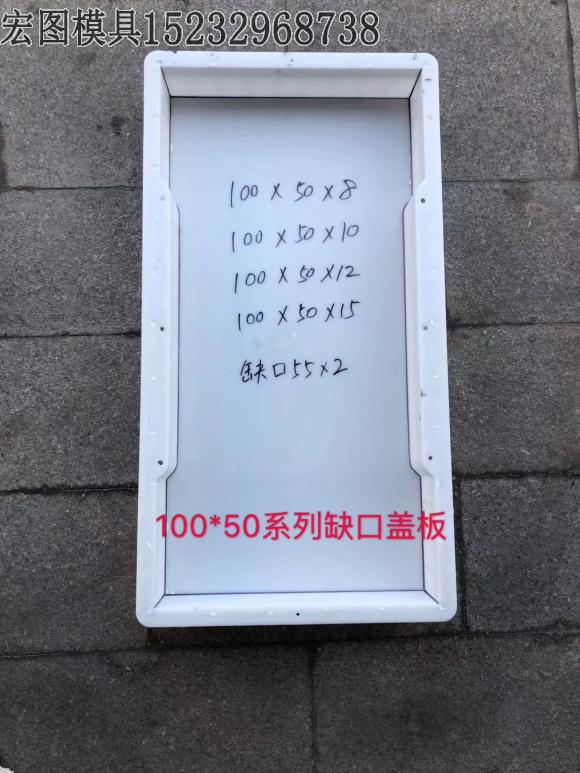 宏图模具15232968738
100×50×8
100×50×10
100×50×12
100×50×15
缺口55×2
100*50系列缺口盖板